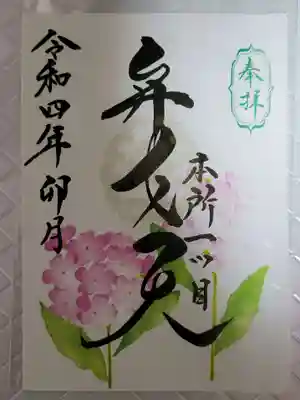 奉拝
本所一ツ目
弁才天
令和四年 卯月